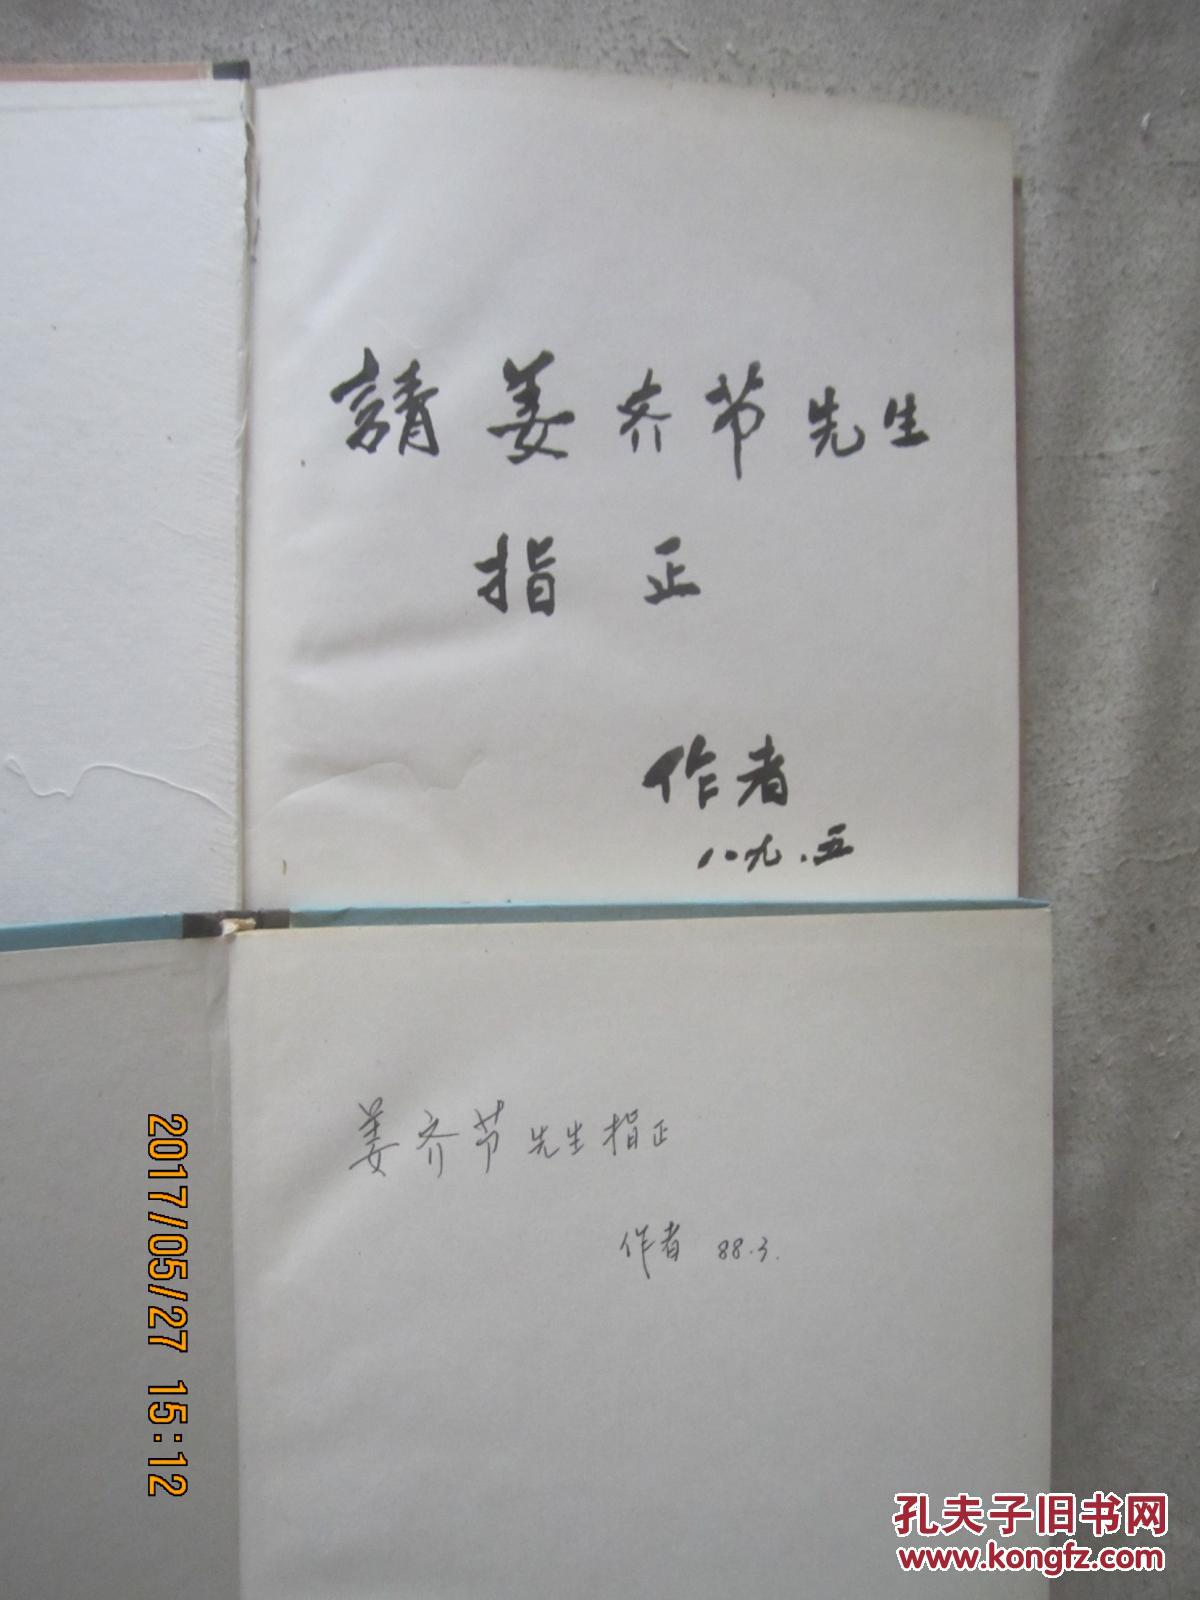 請姜齐节先生
指正
作者
八九.五
姜齐节先生指正
作者 88.3.
2017/05/27 15:12
孔夫子旧书网
www.kongfz.com